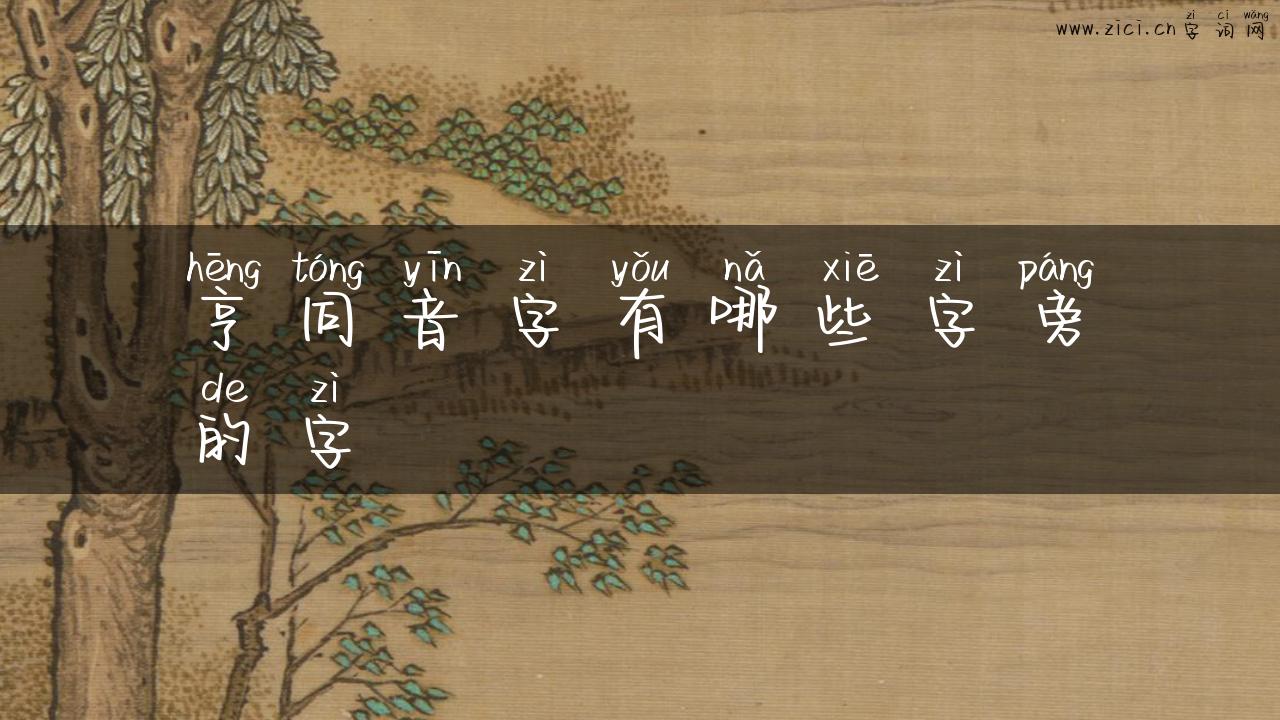 zì cí wǎng
www.zici.cn 字词网
hēng tóng yīn zì yǒu nǎ xiē zì páng
亨同音字有哪些字旁
de zì
的字